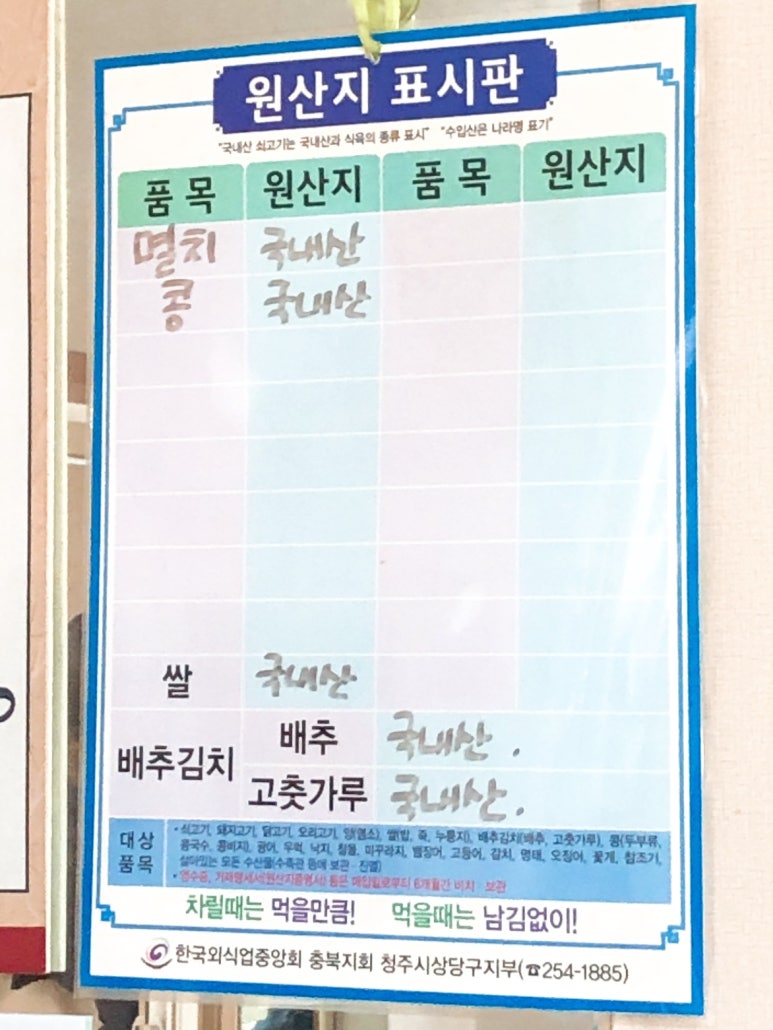 원산지 표시판
"국내산 쇠고기는 국내산과 식육의 종류 표시" "수입산은 나라명 표기"
품목 원산지 품목 원산지
멸치 국내산
콩 국내산
쌀 국내산
배추김치 배추 국내산.
고춧가루 국내산.
대상 품목
• 쇠고기, 돼지고기, 닭고기, 오리고기, 양(염소), 쌀(밥, 죽, 누룽지), 배추김치(배추, 고춧가루), 콩(두부류,
콩국수, 콩비지), 광어, 우럭, 낙지, 참돔, 미꾸라지, 뱀장어, 고등어, 갈치, 명태, 오징어, 꽃게, 참조기,
살아있는 모든 수산물(수족관 등에 보관·진열)
• 영수증, 거래명세서(원산지증명서) 등은 매입일로부터 6개월간 비치·보관
차릴때는 먹을만큼! 먹을때는 남김없이!
한국외식업중앙회 충북지회 청주시상당구지부(☎254-1885)